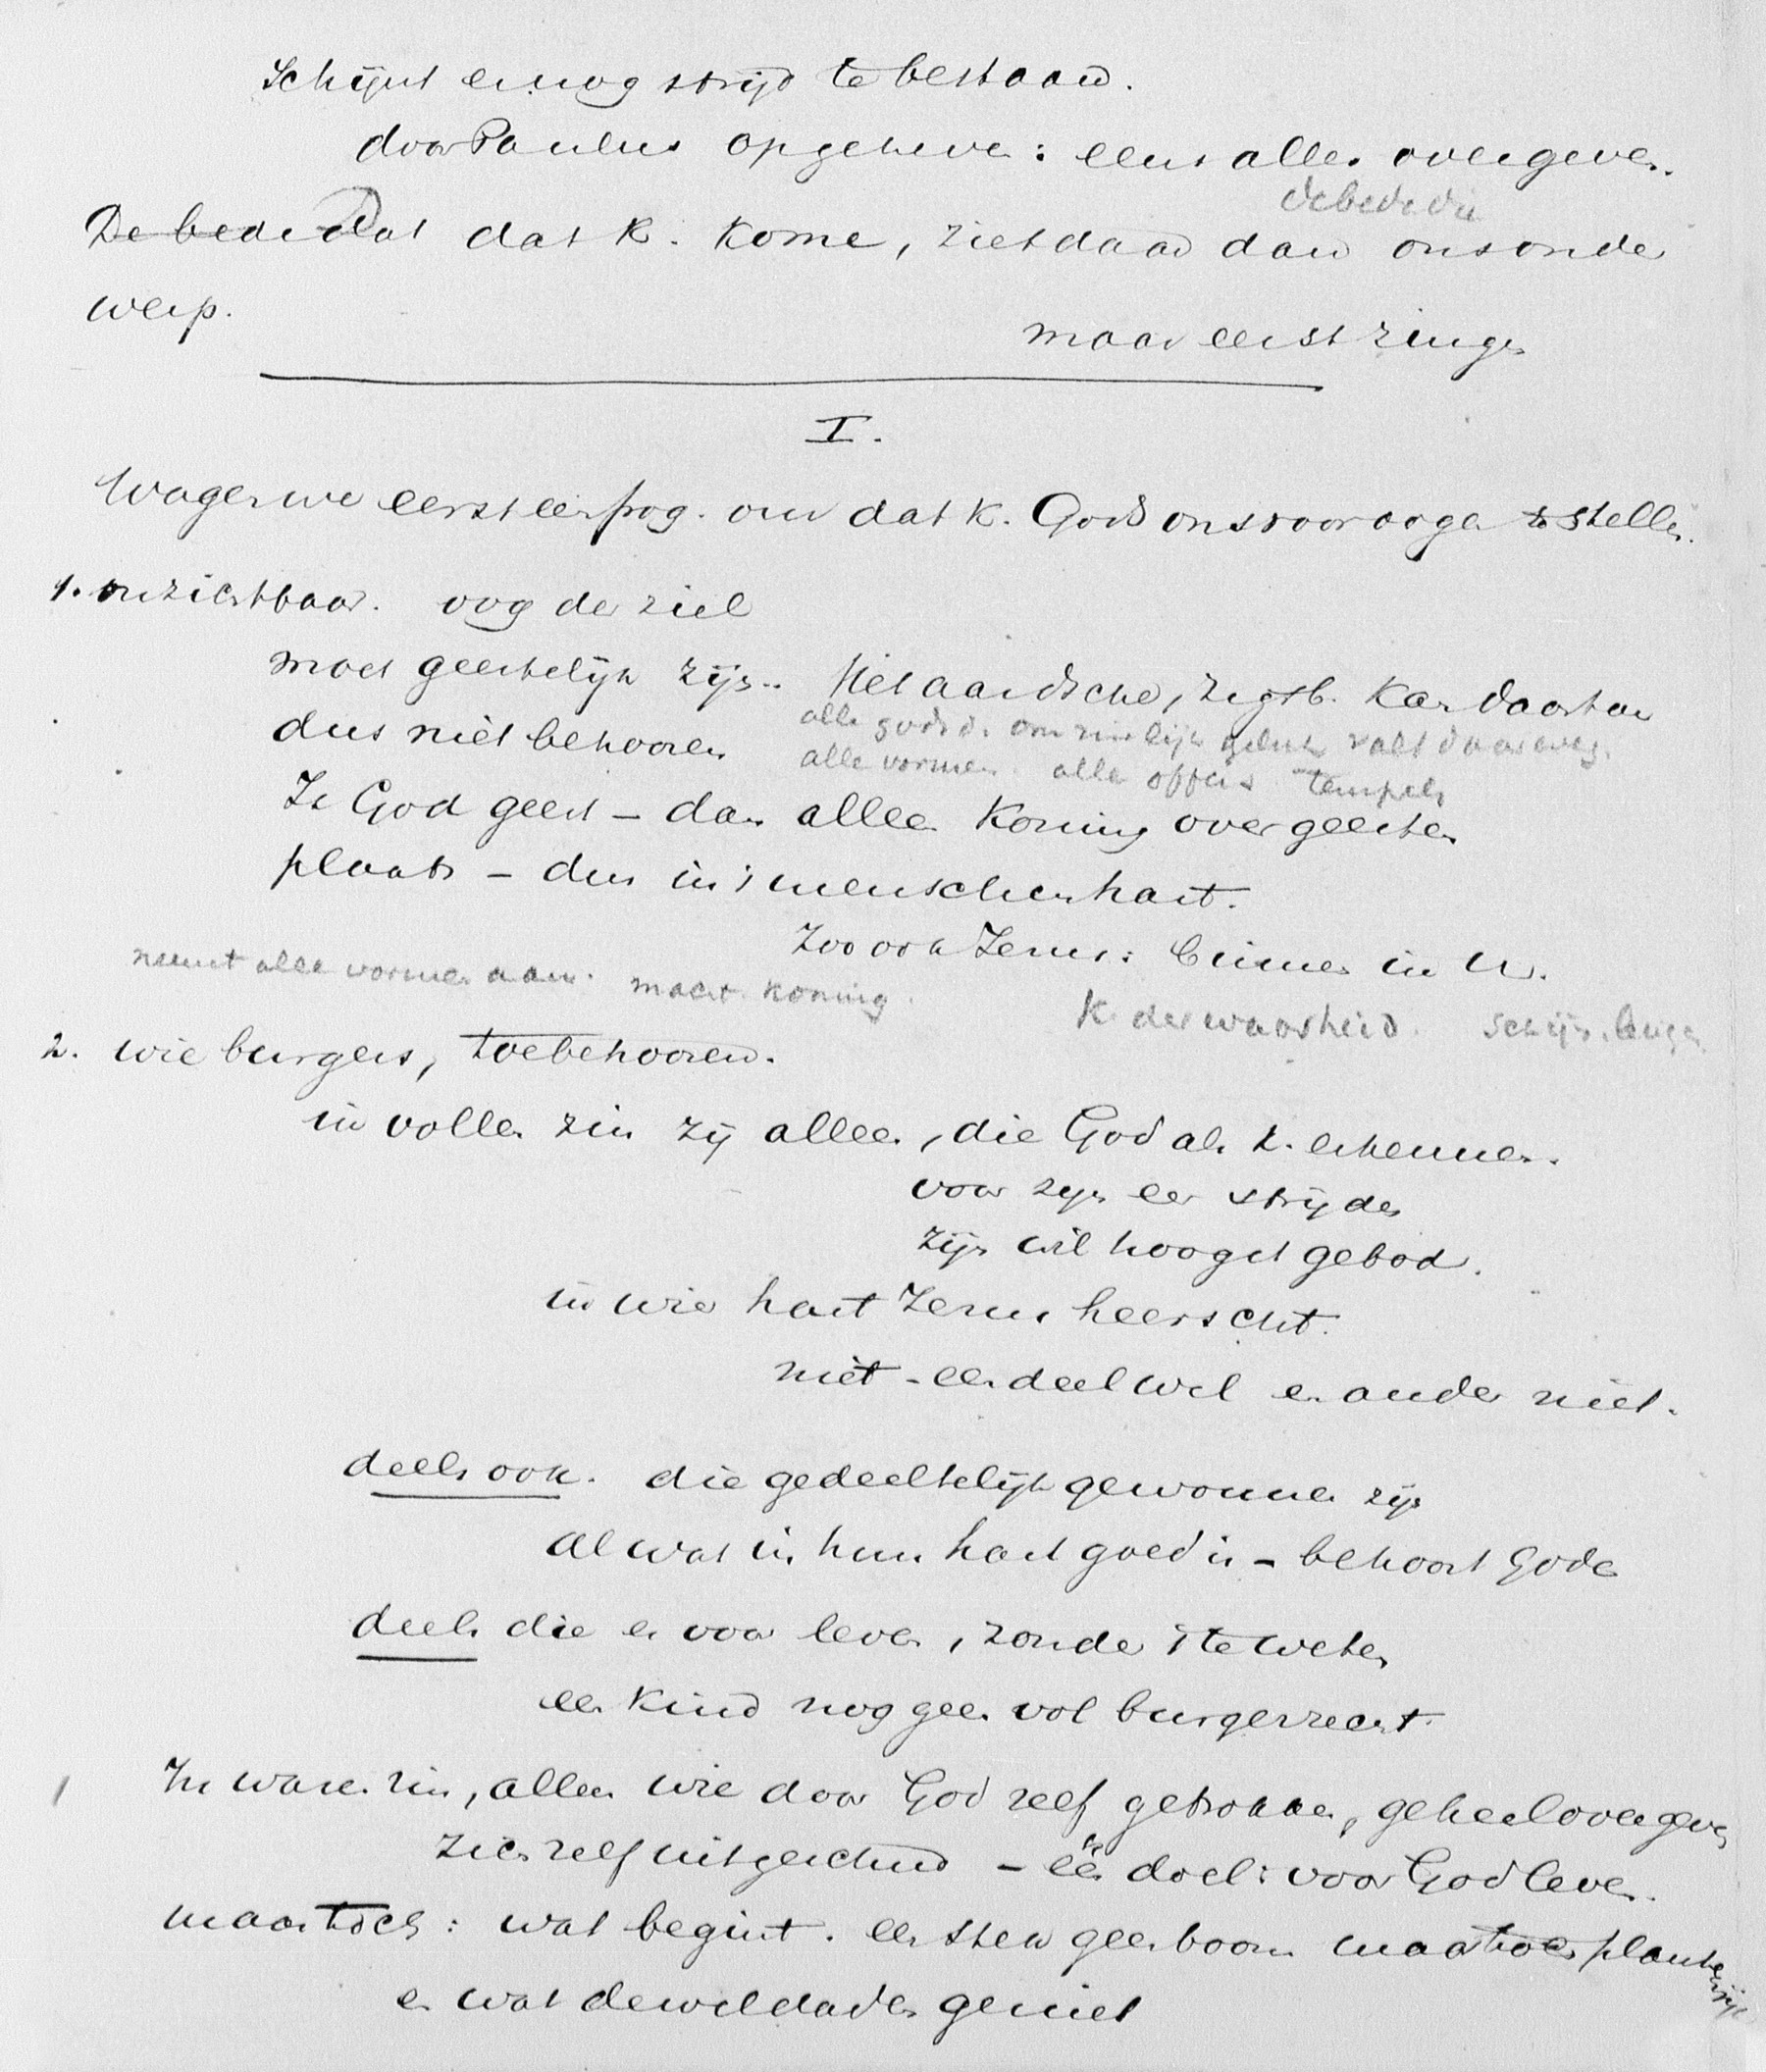 Schijnt er nog strijd te bestaan.
door Paulus opgeheven: eens alles overgeven.
de bede die
De bede dat dat K. kome, ziet daar dan ons onder
werp.
maar eerst zingen
I.
Wagen we eerst een pog. om dat K. Gods ons voor oogen te stellen.
1. onzichtbaar. oog der ziel
moet geestelijk zijn. Het aardsche, zigtb. kan daartoe
dus niet behooren
alle godsd. om zinlijk geluk valt daar weg.
alle vormen. alle offers tempels
Is God geest – dan alleen Koning over geesten
plaats – dus in 's menschen hart.
Zoo ook Jezus: binnen in U.
neemt alle vormen aan. macht. koning.
K. der waarheid. schijn. leugen
2. wie burgers, toebehooren.
in vollen zin zij alleen, die God als K. erkennen.
voor zijn eer strijden
zijn wil hoogst gebod.
in wier hart Jezus heerscht.
niet – een deel wel en ander niet.
deels ook. die gedeeltelijk gewonnen zijn
al wat in hun hart goed is – behoort Gode
deels die er voor leven, zonder 't te weten
een kind nog geen vol burgerrecht.
In waren zin, alleen wie door God zelf getrokken, geheel overgeven
zich zelf uitgeschud – één doel: voor God leven.
maar toch: wat begint. een stek geen boom maar toch plantenrijk
en wat de weldaden geniet